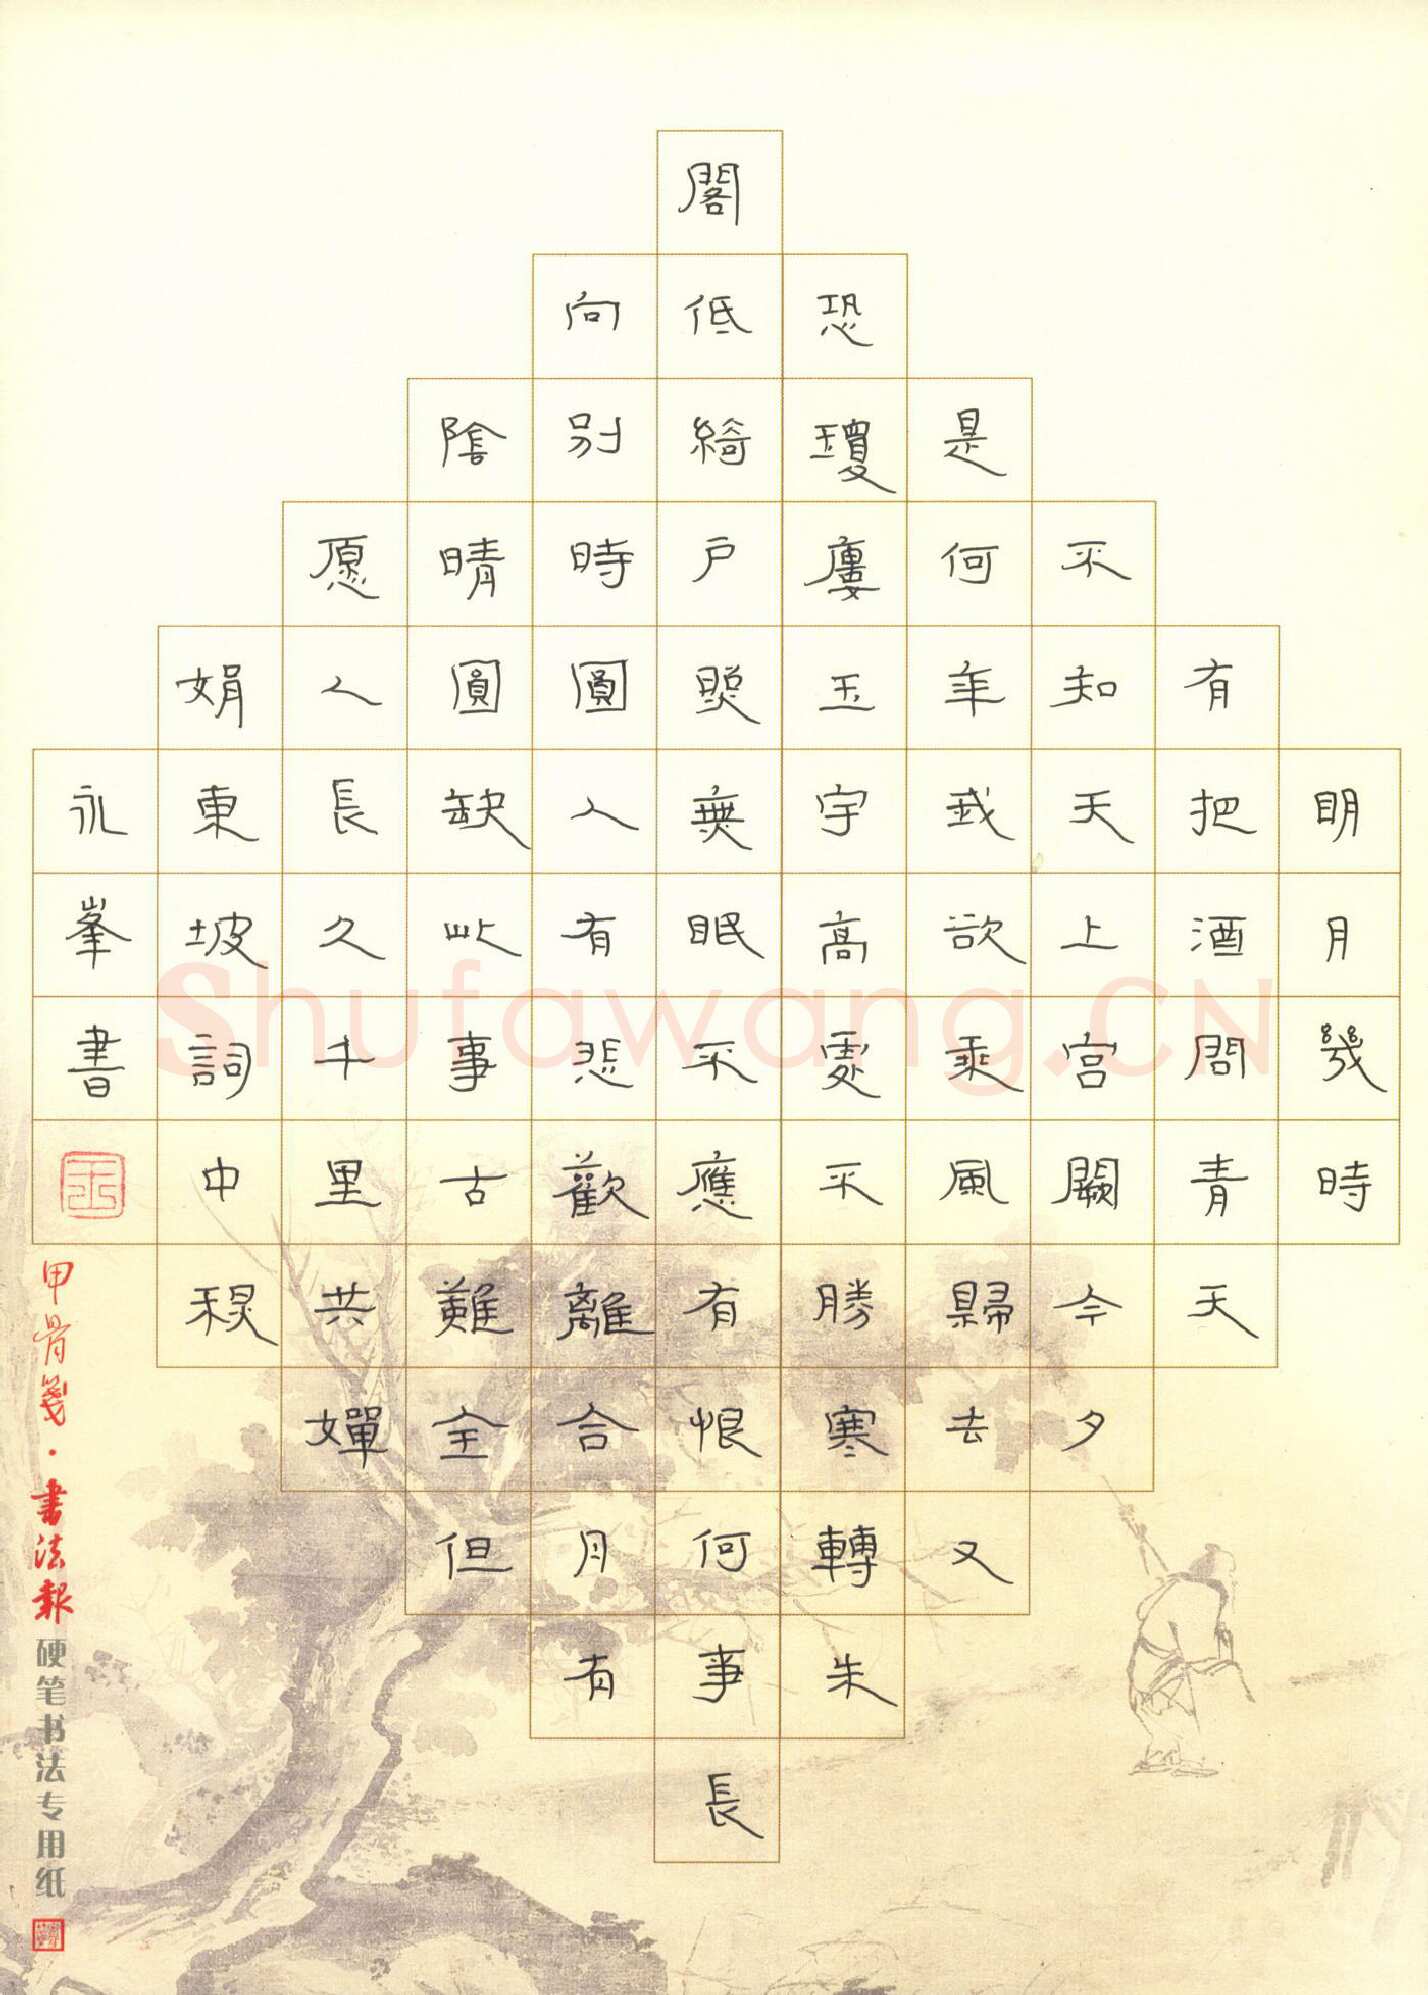 明月幾時
有把酒問青天
不知天上宮闕今夕
是何年我欲乘風歸去又
恐瓊廔玉宇高處不勝寒轉朱
閣低綺戶照無眠不應有恨何事長
向別時圓人有悲歡離合月有
陰晴圓缺此事古難全但
愿人長久千里共嬋
娟東坡詞中秋
永峯書
甲骨箋·書法報
硬笔书法专用纸
Shufawang.CN